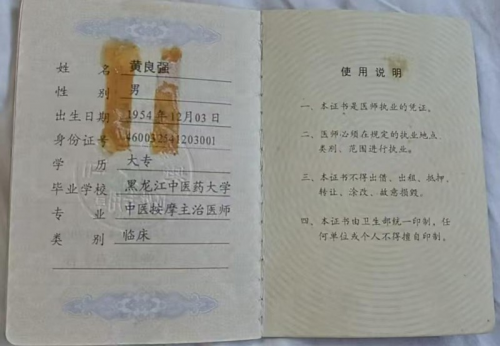 姓 名 黄良强
性 别 男
出生日期 1954年12月03日
身份证号 460032541203001
学 历 大专
毕业学校 黑龙江中医药大学
专 业 中医按摩主治医师
类 别 临床
使用说明
一、本证书是医师执业的凭证。
二、医师必须在规定的执业地点、
类别、范围进行执业。
三、本证书不得出借、出租、抵押、
转让、涂改、故意损毁。
四、本证书由卫生部统一印制，任
何单位或个人不得擅自印制。